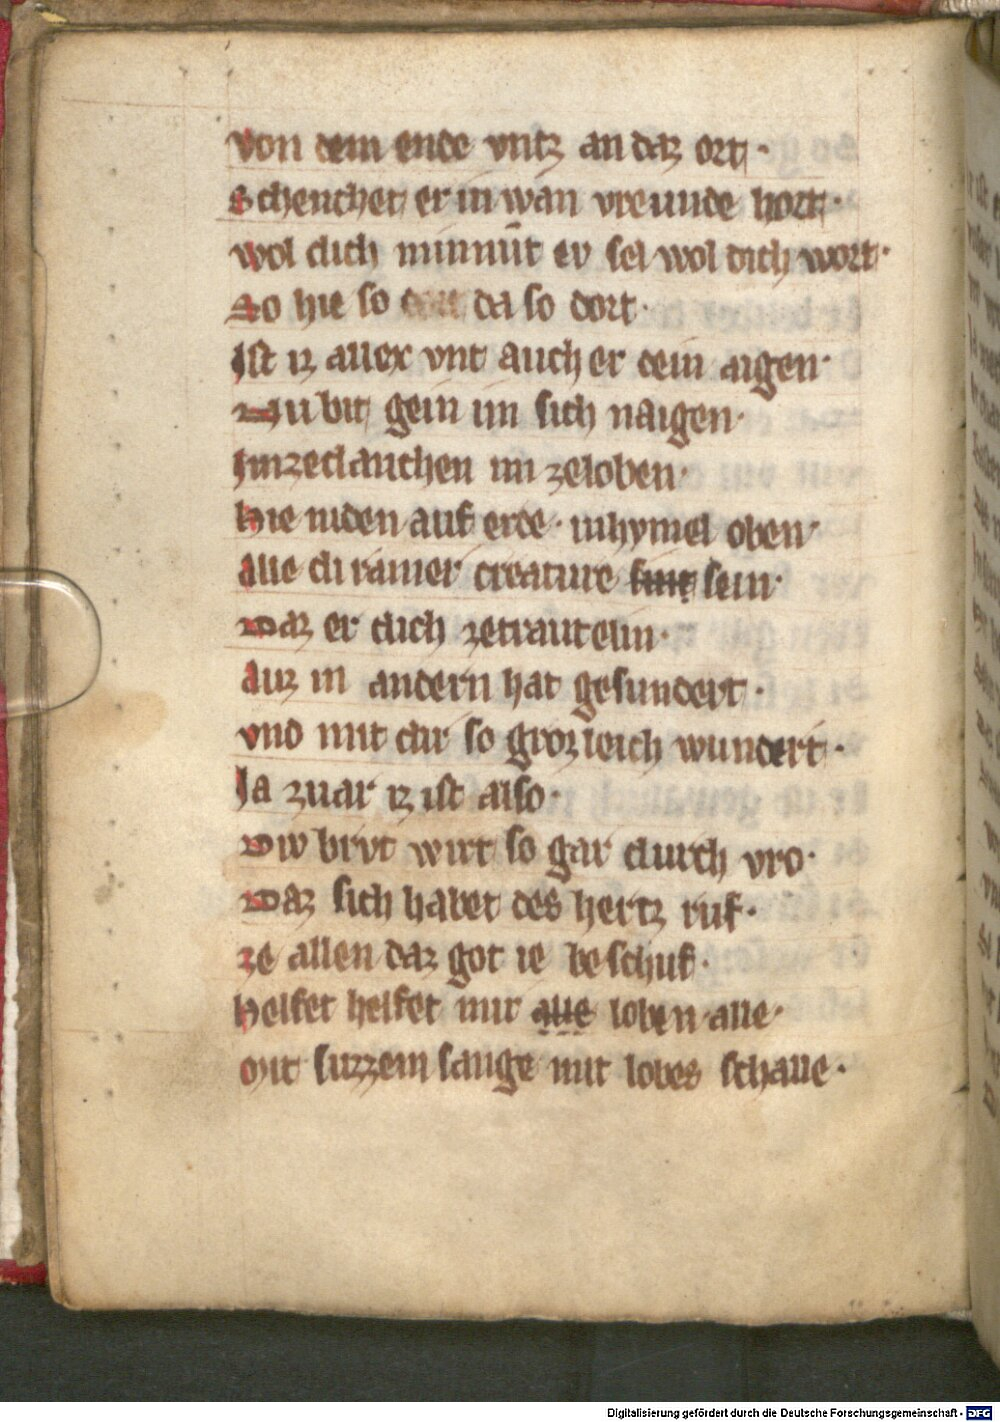 Von dem ende vntz an daz ort ·
Schenchet er in wan vreunde hort ·
Wol dich minnūt er sel wol dich wort ·
So hie so da so dort ·
Ist iz allex vnt auch er dein aigen ·
Nu bit gein im sich naigen ·
Im zedanchen im zeloben ·
Hie niden auf erde · in hymel oben ·
Alle di rainer creature sint sein ·
Daz er dich zetrautelin ·
Auz in andern hat gesundert ·
Vnd mit dir so grozleich wundert ·
Ja zuar iz ist also ·
Diw brvt wirt so gar durch vro ·
Daz sich habet des hertz ruf ·
Ze allen daz got ie beschuf ·
Helfet helfet mir alle loben alle ·
Mit suzzem sange mit lobes schalle ·
Digitalisierung gefördert durch die Deutsche Forschungsgemeinschaft - DFG